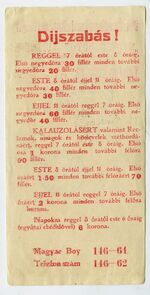 Díjszabás!
REGGEL 7 órától este 8 óráig.
Első negyedóra 30 fillér minden további
negyedóra 20 fillér.
ESTE 8 órától éjjel 11 óráig. Első
negyedóra 60 fillér minden további ne-
gyedóra 40 fillér.
ÉJJEL 11 órától reggel 7 óráig. Első
negyedóra 90 fillér minden további
negyedóra 60 fillér.
KALAUZOLÁSÉRT valamint Rek-
lámok, újságok és hölevelek széthordá-
sért 8 órától este 8 óráig. Első
óra 1 korona minden további félóra
90 fillér.
ESTE 8 órától éjjel 11 óráig. Első
óra 1·50 minden további félóra 70
fillér.
ÉJJEL 11 órától reggel 7 óráig. Első
félóra 2 korona, minden további
félóra 1 korona.
Napokra reggel 8 órától este 8 óráig
(egyuttal ebédidővel) 6 korona.
Magyar Boy 146—61
Telefon szám 146—62